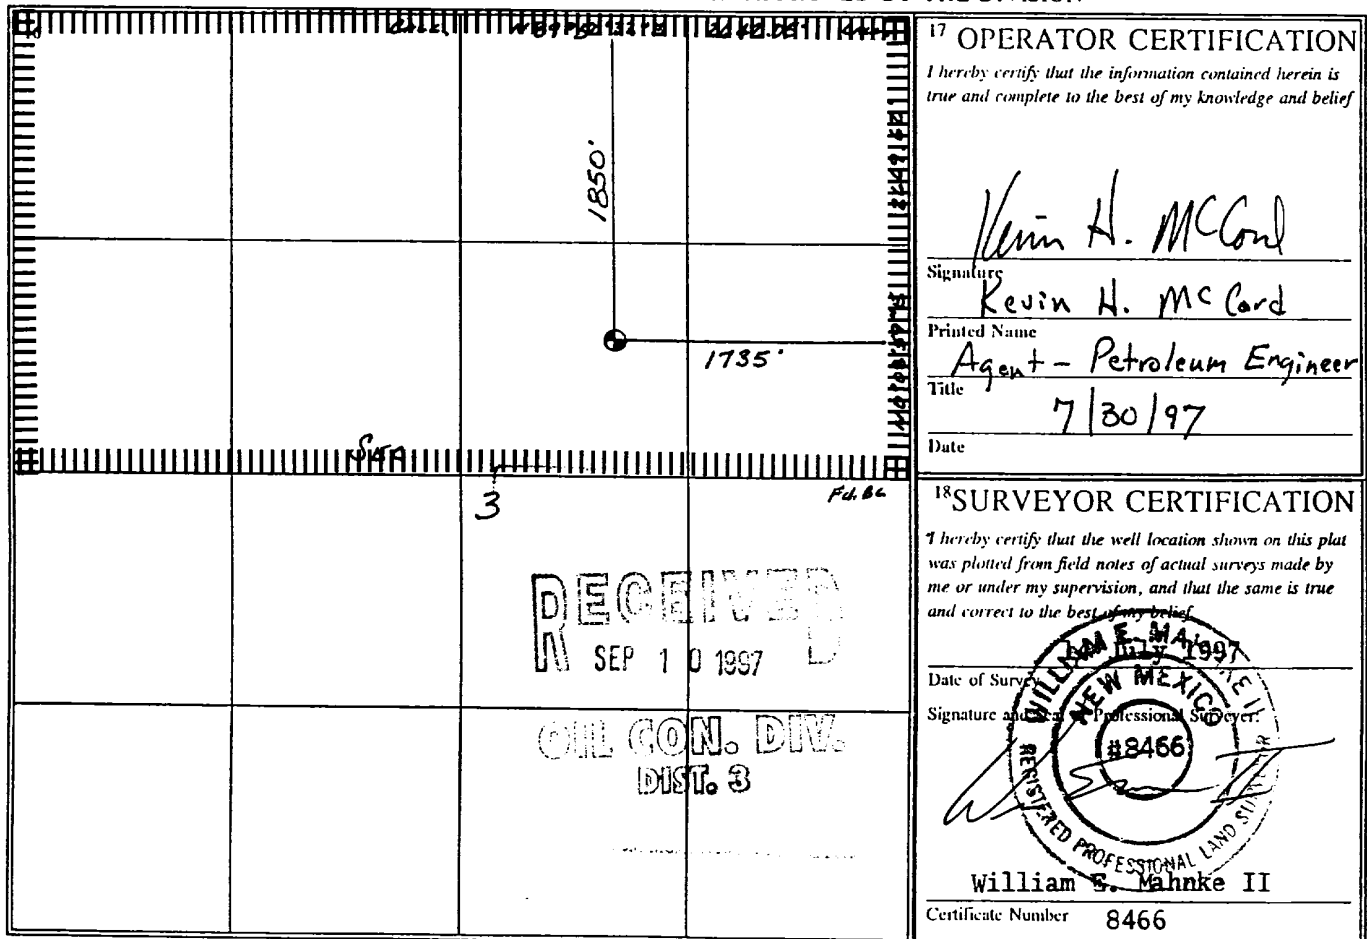 BY THE DIVISION
1850'
1735'
Sec
3
Fd. BC
RECEIVED
SEP 10 1997
OIL CON. DIV.
DIST. 3
17 OPERATOR CERTIFICATION
I hereby certify that the information contained herein is
true and complete to the best of my knowledge and belief
Kevin H. McCord
Signature
Kevin H. McCord
Printed Name
Agent - Petroleum Engineer
Title
7/30/97
Date
18 SURVEYOR CERTIFICATION
I hereby certify that the well location shown on this plat
was plotted from field notes of actual surveys made by
me or under my supervision, and that the same is true
and correct to the best of my belief
July 1997
Date of Survey
Signature and Seal of Professional Surveyer:
WILLIAM E. MAHNKE II
NEW MEXICO
#8466
REGISTERED PROFESSIONAL LAND SURVEYOR
William E. Mahnke II
Certificate Number 8466